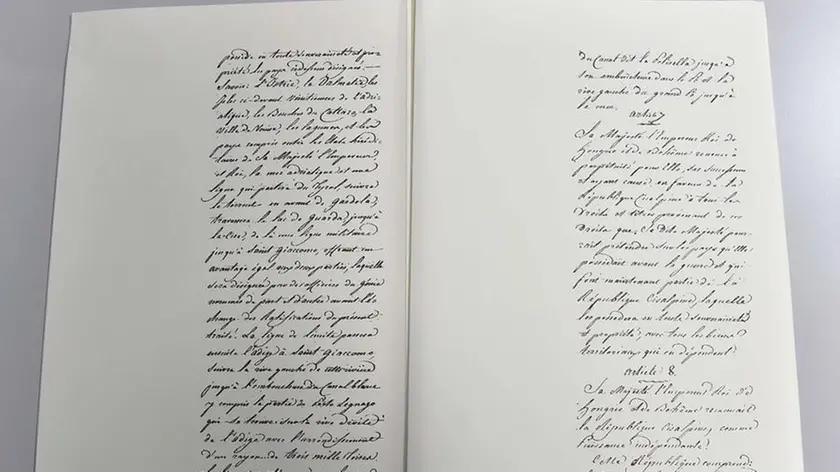 possède en toute Souveraineté et pro-
priété les pays cidessous désignés :
Savoir : l'Istrie, la Dalmatie, les
Isles ci-devant Vénitiennes de l'adri-
atique, les Bouches du Cattaro, la
Ville de Venise, les lagunes, et les
pays compris entre les Etats héridi-
taires de Sa Majesté l'Empereur,
et Roi, la mer adriatique et une
ligne qui partira du Tyrol, suivra
le torrent en avant de Gardola,
traversera le lac de Guarda, jusqu'à
la Cise, de là une ligne militaire
jusqu'à Saint Giacomo, offrant un
avantage égal aux deux parties, laquelle
sera désignée par des officiers du Génie
nommés de part et d'autre avant l'é-
change des Ratifications du présent
traité. La ligne de limite passera
ensuite l'adige à Saint Giacomo,
suivra la rive gauche de cette rivière
jusqu'à l'embouchure du Canal blanc
y compris la partie de Porto Legnago
qui se trouve sur la rive droite
de l'adige avec l'arrondissement
d'un rayon de trois mille toises.
du Canal dit la Polsella jusqu'à
son embouchure dans le Pô et la
rive gauche du grand Pô jusqu'à
la mer.
article 7
Sa Majesté l'Empereur Roi de
Hongrie et de Bohême renonce à
perpétuité pour Elle, ses successeurs
et ayant cause, en faveur de la
République Cisalpine à tous les
Droits et titres provenant de ces
Droits que Sa Dite Majesté pour-
rait prétendre sur les pays qu'elle
possédait avant la guerre et qui
font maintenant partie de la
République Cisalpine, laquelle
les possédera en toute Souveraineté
et propriété, avec tous les biens
territoriaux qui en dépendent.
article 8.
Sa Majesté l'Empereur Roi de
Hongrie et de Bohême reconnait
la République Cisalpine, comme
Puissance indépendante.
Cette République comprend